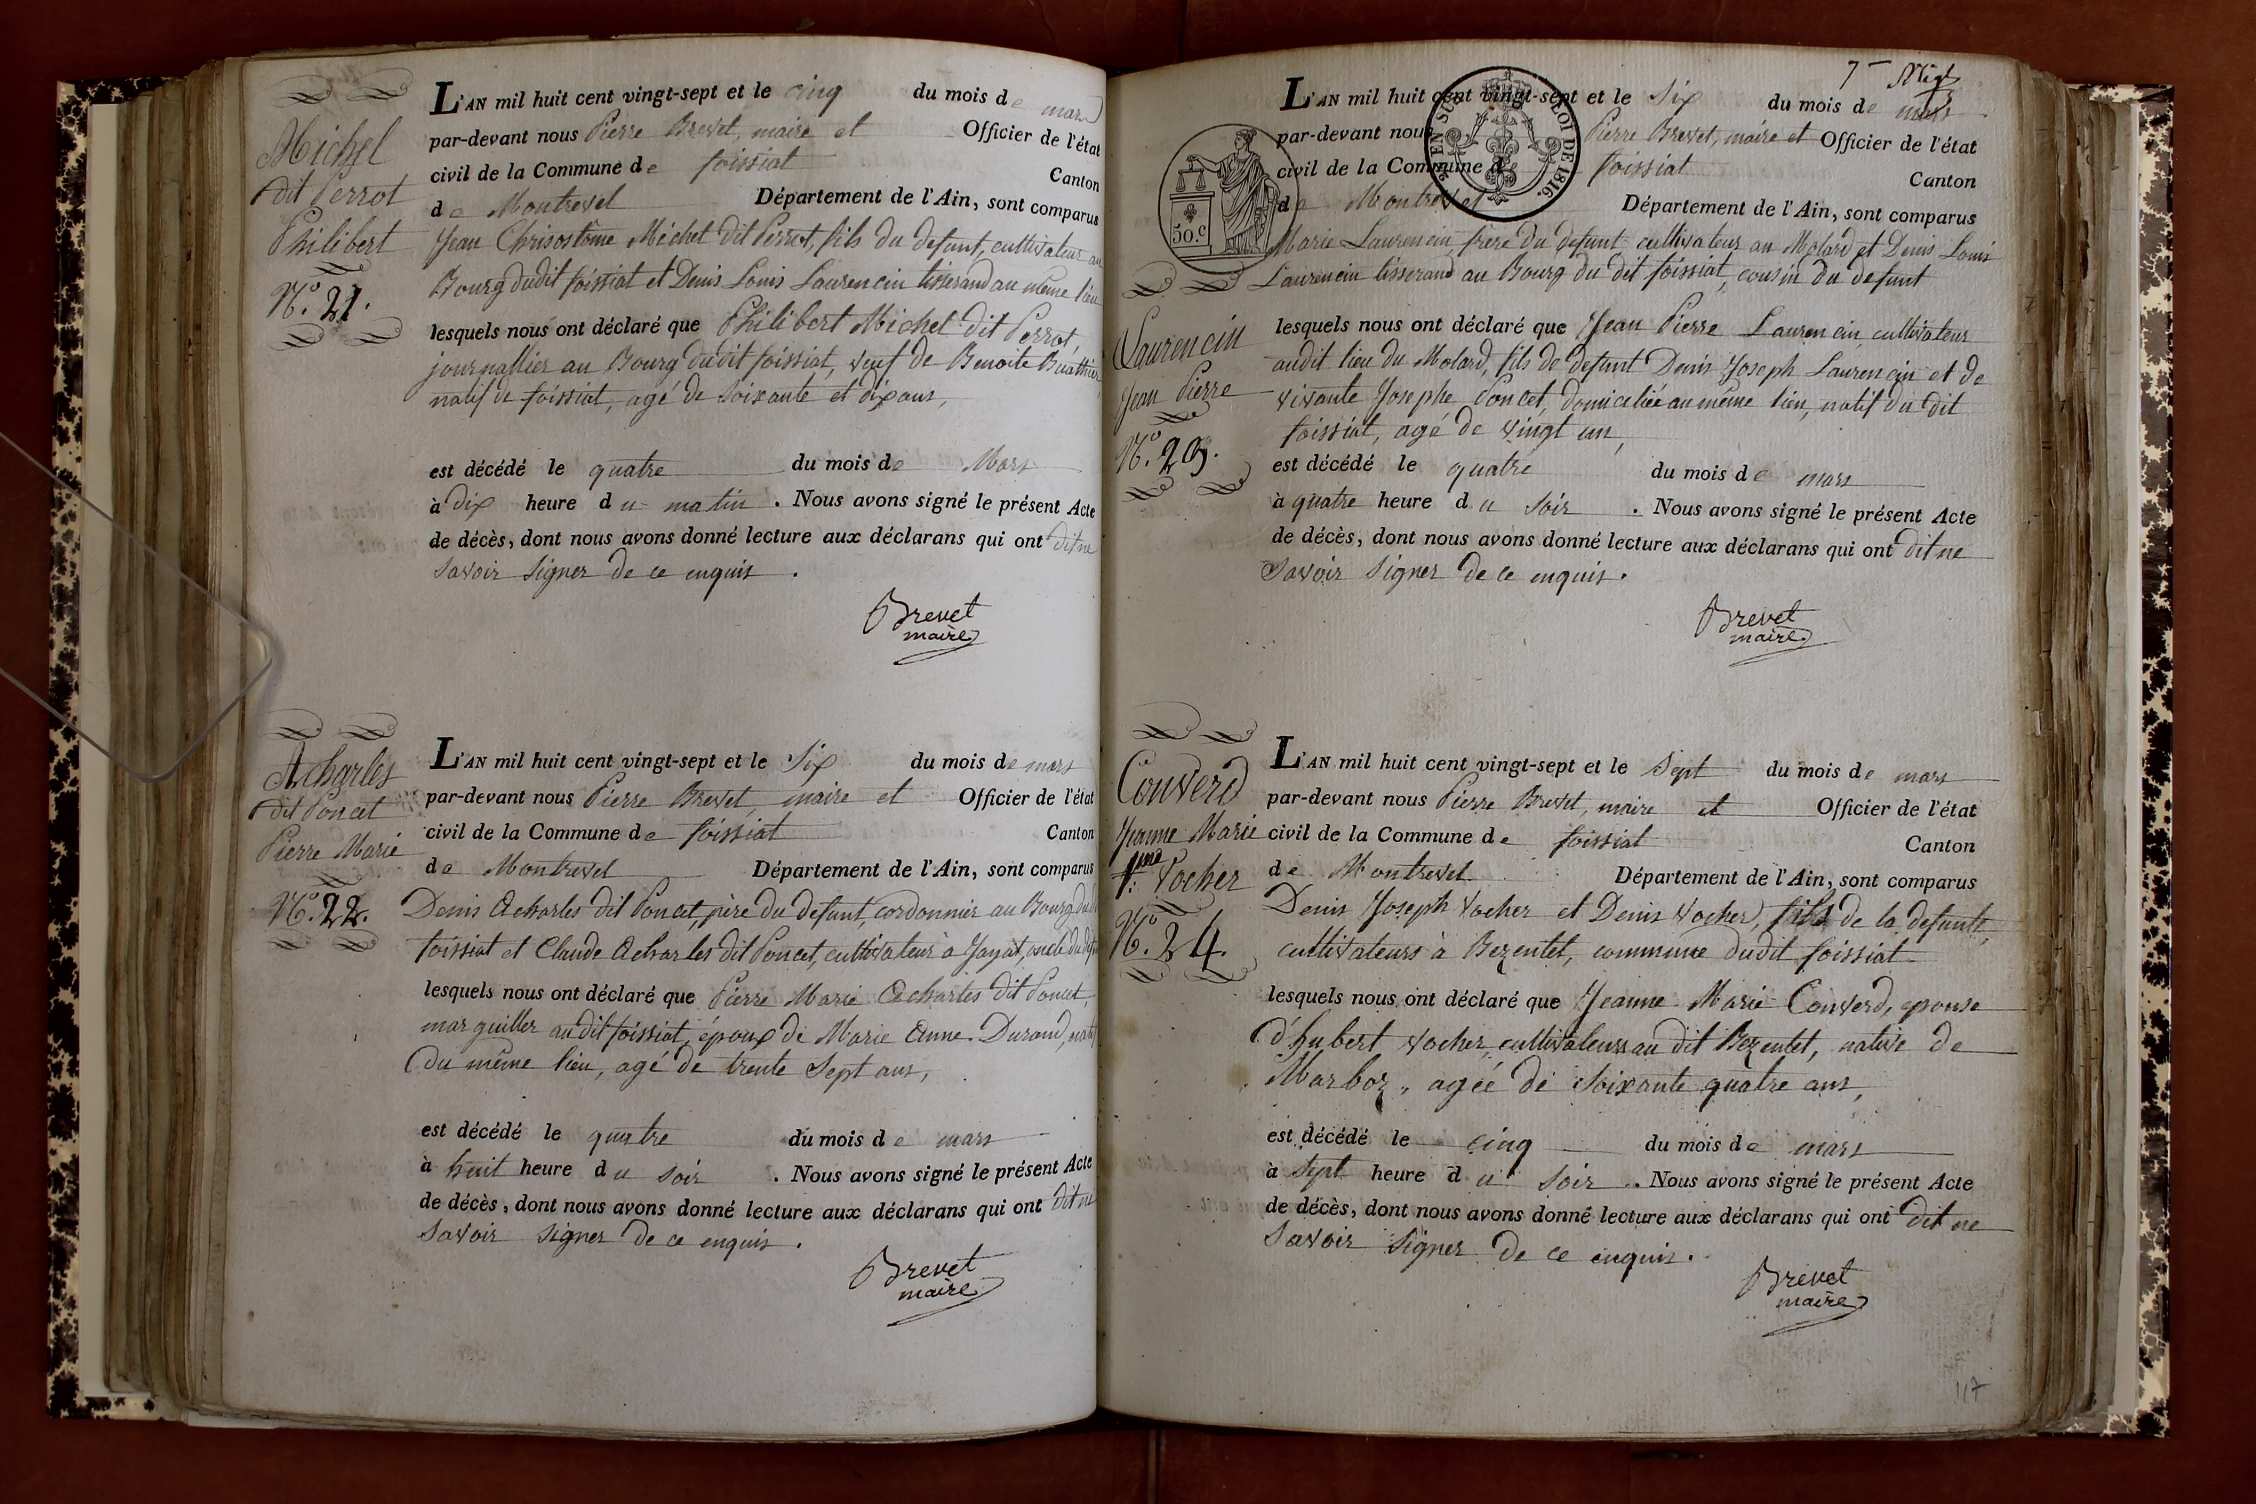 Michel
dit Perrot
Philibert
N.° 21.
L'AN mil huit cent vingt-sept et le cinq du mois de mars
par-devant nous Pierre Brevet, maire et Officier de l'état
civil de la Commune de foissiat Canton
de Montrevel Département de l'Ain, sont comparus
Jean Chrisostome Michel dit Perrot, fils du defunt, cultivateur au
Bourg dudit foissiat et Denis Louis Laurencin tisserand au même lieu
lesquels nous ont déclaré que Philibert Michel dit Perrot,
journallier au Bourg dudit foissiat, veuf de Benoite Buathier,
natif de foissiat, agé de soixante et dix ans,
est décédé le quatre du mois de Mars
à dix heure du matin. Nous avons signé le présent Acte
de décès, dont nous avons donné lecture aux déclarans qui ont dit ne
savoir signer de ce enquis.
Brevet
maire
Acharles
dit Poncet
Pierre Marie
N.° 22.
L'AN mil huit cent vingt-sept et le Six du mois de mars
par-devant nous Pierre Brevet, maire et Officier de l'état
civil de la Commune de foissiat Canton
de Montrevel Département de l'Ain, sont comparus
Denis Acharles dit Poncet, père du defunt, cordonnier au Bourg dudit
foissiat et Claude Acharles dit Poncet, cultivateur à Jayat, oncle du
lesquels nous ont déclaré que Pierre Marie Acharles dit Poncet,
marguiller audit foissiat, époux de Marie Anne Durand, natif
du même lieu, agé de trente Sept ans,
est décédé le quatre du mois de mars
à huit heure du soir. Nous avons signé le présent Acte
de décès, dont nous avons donné lecture aux déclarans qui ont dit ne
savoir signer de ce enquis.
Brevet
maire
7
50.c
EN SUS LOI DE 1816.
Laurencin
Jean Pierre
N.° 23.
L'AN mil huit cent vingt-sept et le Six du mois de mars
par-devant nous Pierre Brevet, maire et Officier de l'état
civil de la Commune de foissiat Canton
de Montrevel Département de l'Ain, sont comparus
Marie Laurencin, frère du defunt cultivateur au Molard et Denis Louis
Laurencin tisserand au Bourg du dit foissiat, cousin du defunt
lesquels nous ont déclaré que Jean Pierre Laurencin cultivateur
audit lieu du Molard, fils de defunt Denis Joseph Laurencin et de
vivante Josephe Poncet, domiciliée au même lieu, natif du dit
foissiat, agé de vingt un,
est décédé le quatre du mois de mars
à quatre heure du soir. Nous avons signé le présent Acte
de décès, dont nous avons donné lecture aux déclarans qui ont dit ne
savoir signer de ce enquis.
Brevet
maire
Couverd
Jeanne Marie
f.me Vocher
N.° 24.
L'AN mil huit cent vingt-sept et le Sept du mois de mars
par-devant nous Pierre Brevet, maire et Officier de l'état
civil de la Commune de foissiat Canton
de Montrevel Département de l'Ain, sont comparus
Denis Joseph Vocher et Denis Vocher, fils de la defunte,
cultivateurs à Bezentet, commune dudit foissiat
lesquels nous ont déclaré que Jeanne Marie Couverd, epouse
d'hubert Vocher, cultivateurs au dit Bezentet, native de
Marboz, agée de soixante quatre ans,
est décédé le cinq du mois de mars
à sept heure du soir. Nous avons signé le présent Acte
de décès, dont nous avons donné lecture aux déclarans qui ont dit ne
savoir signer de ce enquis.
Brevet
maire
117